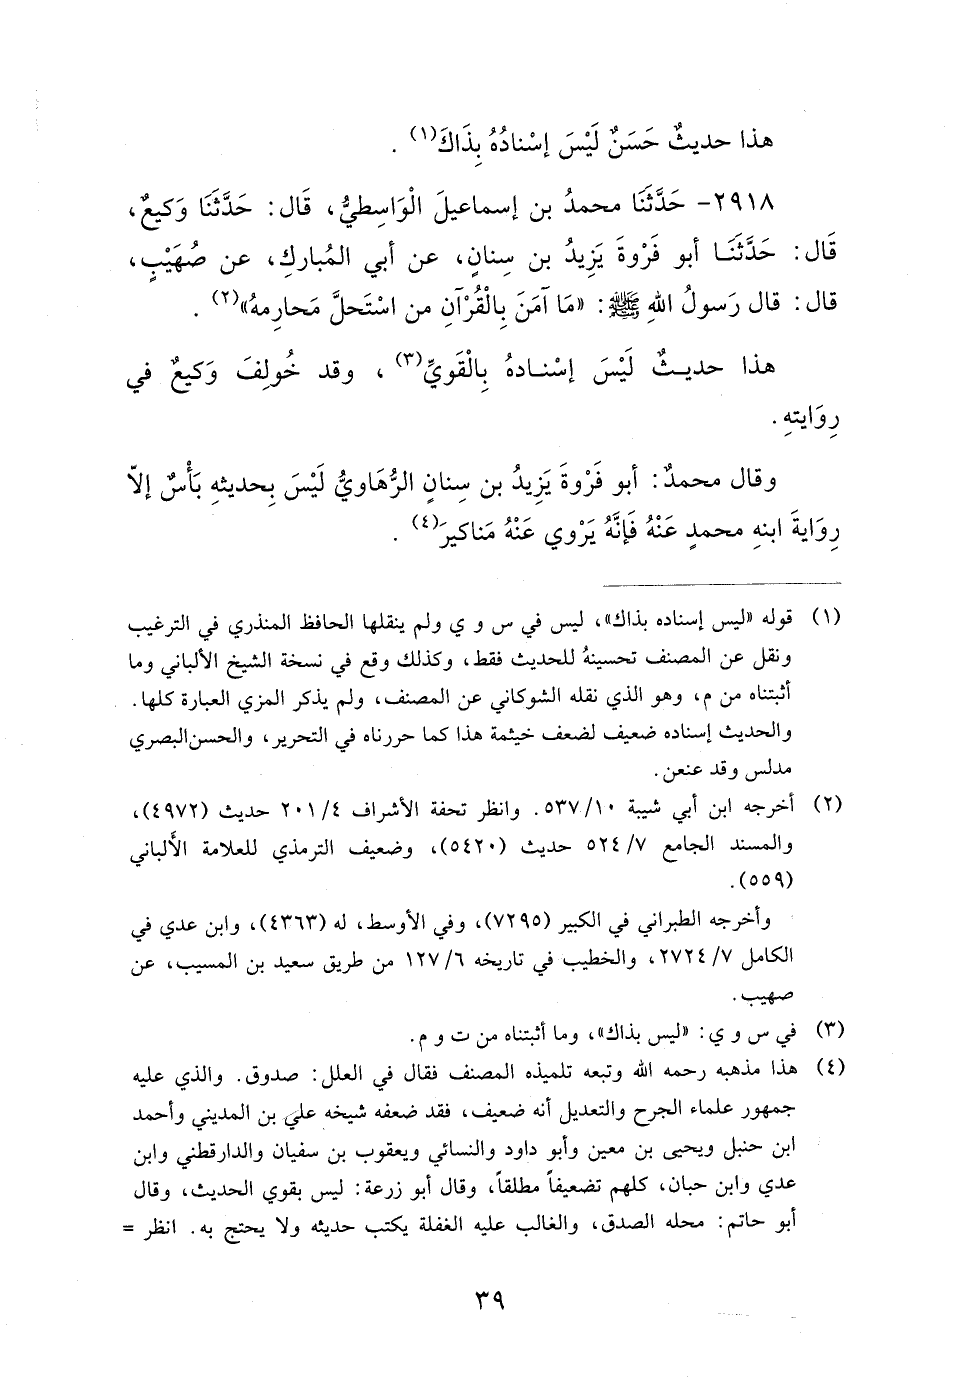 هذا حديثٌ حَسَنٌ لَيْسَ إسْنادُهُ بِذَاكَ(١) .
٢٩١٨- حَدَّثَنَا محمدُ بن إسماعيلَ الْوَاسِطيُّ، قَال: حَدَّثَنَا وَكيعٌ،
قَال: حَدَّثَنَا أبو فَرْوةَ يَزِيدُ بن سِنانٍ، عن أبي المُباركِ، عن صُهَيْبٍ،
قال: قال رَسولُ اللهِ ﷺ: «مَا آمَنَ بِالْقُرْآنِ من اسْتَحلَّ مَحارِمهُ»(٢) .
هذا حديثٌ لَيْسَ إسْنادهُ بِالْقَويِّ(٣) ، وقد خُولِفَ وَكيعٌ في
رِوَايتهِ .
وقال محمدٌ: أبو فَرْوةَ يَزِيدُ بن سِنانٍ الرُّهَاويُّ لَيْسَ بِحديثهِ بَأْسٌ إلاّ
رِوَايةَ ابنهِ محمدٍ عَنْهُ فَإنَّهُ يَرْوي عَنْهُ مَناكيرَ(٤) .
(١) قوله «ليس إسناده بذاك»، ليس في س و ي ولم ينقلها الحافظ المنذري في الترغيب
ونقل عن المصنف تحسينهُ للحديث فقط، وكذلك وقع في نسخة الشيخ الألباني وما
أثبتناه من م، وهو الذي نقله الشوكاني عن المصنف، ولم يذكر المزي العبارة كلها.
والحديث إسناده ضعيف لضعف خيثمة هذا كما حررناه في التحرير، والحسن البصري
مدلس وقد عنعن.
(٢) أخرجه ابن أبي شيبة ٥٣٧/١٠. وانظر تحفة الأشراف ٢٠١/٤ حديث (٤٩٧٢)،
والمسند الجامع ٥٢٤/٧ حديث (٥٤٢٠)، وضعيف الترمذي للعلامة الألباني
(٥٥٩).
وأخرجه الطبراني في الكبير (٧٢٩٥)، وفي الأوسط، له (٤٣٦٣)، وابن عدي في
الكامل ٢٧٢٤/٧، والخطيب في تاريخه ١٢٧/٦ من طريق سعيد بن المسيب، عن
صهيب.
(٣) في س و ي: «ليس بذاك»، وما أثبتناه من ت و م.
(٤) هذا مذهبه رحمه الله وتبعه تلميذه المصنف فقال في العلل: صدوق. والذي عليه
جمهور علماء الجرح والتعديل أنه ضعيف، فقد ضعفه شيخه علي بن المديني وأحمد
ابن حنبل ويحيى بن معين وأبو داود والنسائي ويعقوب بن سفيان والدارقطني وابن
عدي وابن حبان، كلهم تضعيفاً مطلقاً، وقال أبو زرعة: ليس بقوي الحديث، وقال
أبو حاتم: محله الصدق، والغالب عليه الغفلة يكتب حديثه ولا يحتج به. انظر =
٣٩